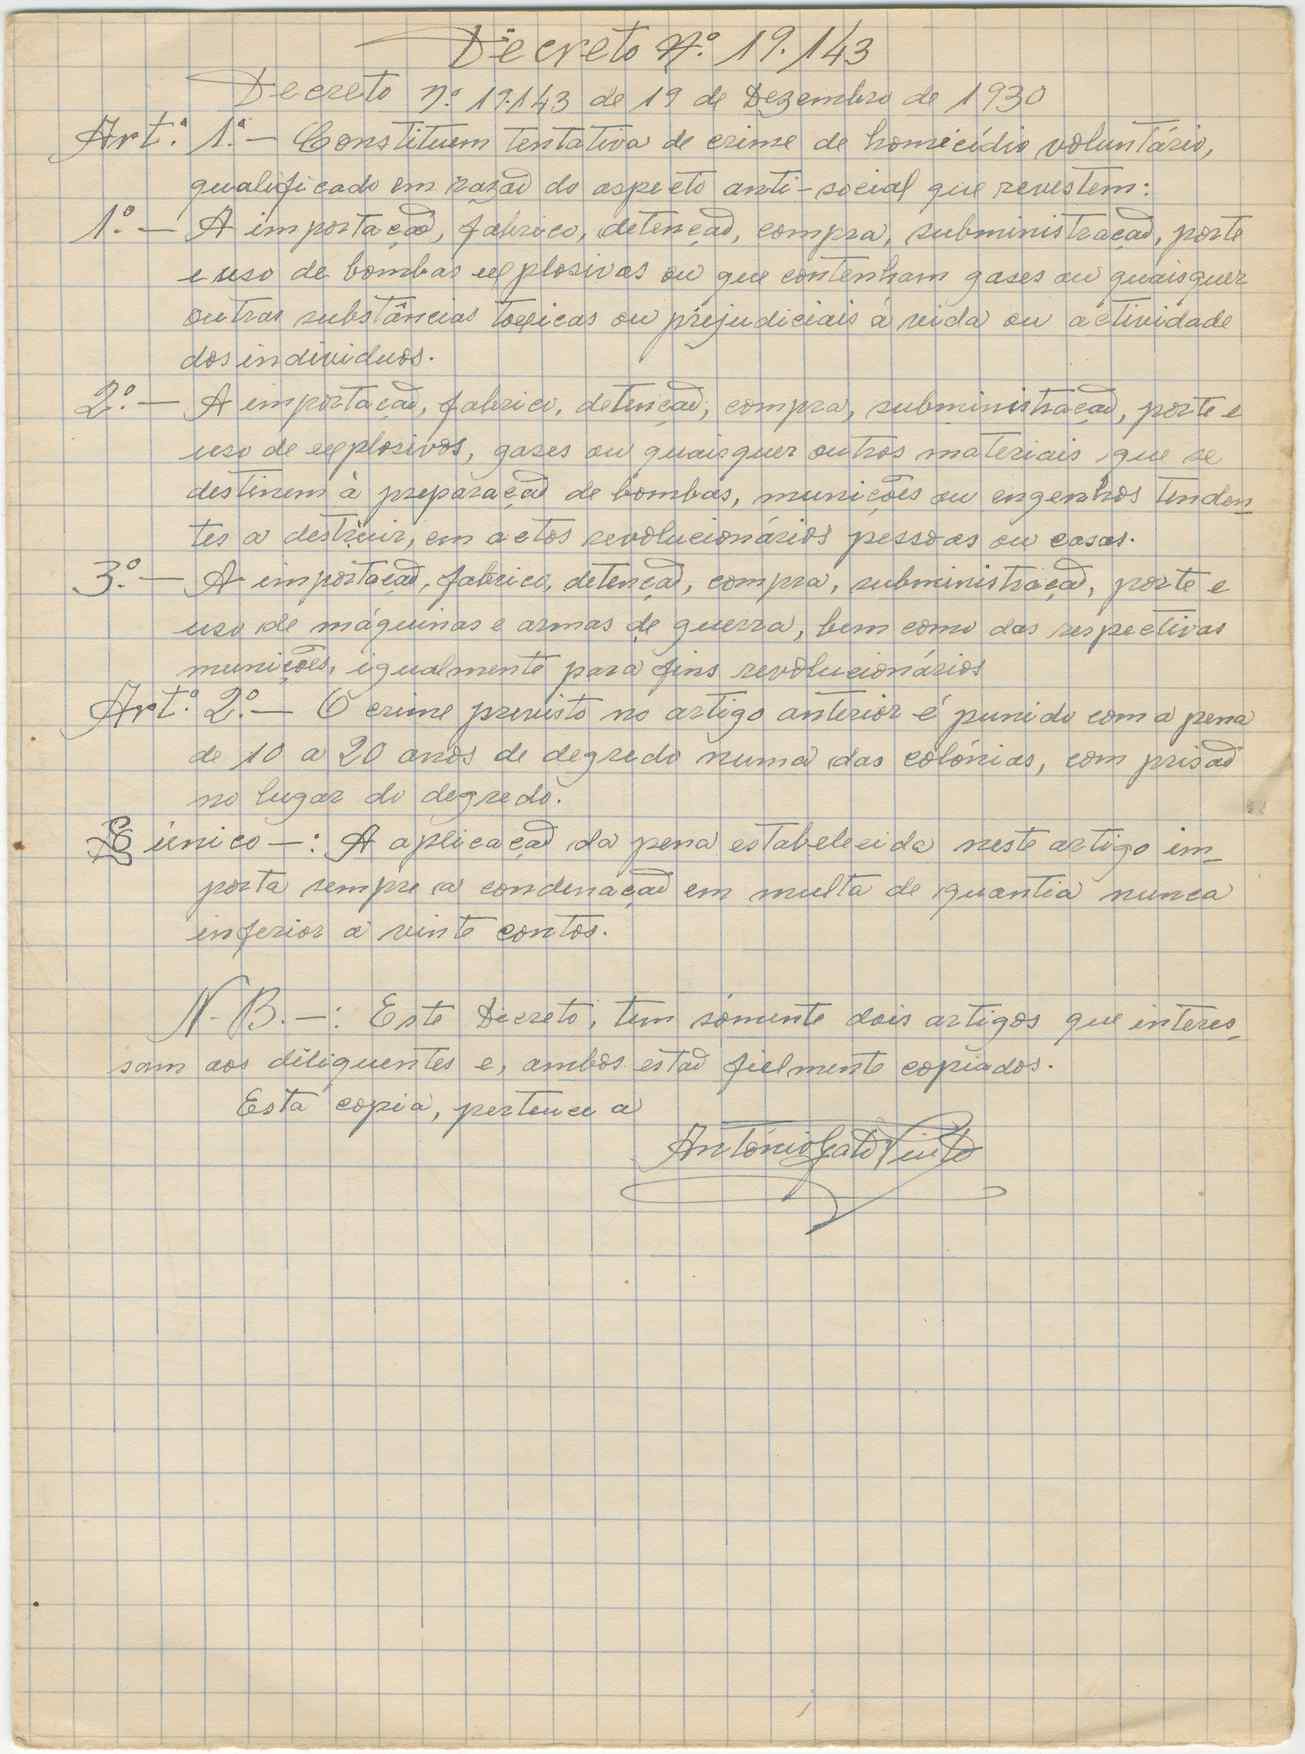 Decreto N.º 19.143
Decreto n.º 19.143 de 19 de Dezembro de 1930
Art.º 1.º — Constituem tentativa de crime de homicídio voluntário,
qualificado em razão do aspecto anti-social que revestem:
1.º — A importação, fabrico, detenção, compra, subministração, porte
e uso de bombas explosivas ou que contenham gases ou quaisquer
outras substâncias toxicas ou prejudiciais á vida ou actividade
dos individuos.
2.º — A importação, fabrico, detenção, compra, subministração, porte e
uso de explosivos, gases ou quaisquer outros materiais que se
destinem à preparação de bombas, munições ou engenhos tenden_
tes a destruir, em actos revolucionários pessoas ou casas.
3.º — A importação, fabrico, detenção, compra, subministração, porte e
uso de máquinas e armas de guerra, bem como das respectivas
munições, igualmente para fins revolucionários
Art.º 2.º — O crime previsto no artigo anterior é punido com a pena
de 10 a 20 anos de degredo numa das colónias, com prisão
no lugar do degredo.
§ único —: A aplicação da pena estabelecida neste artigo im_
porta sempre a condenação em multa de quantia nunca
inferior a vinte contos.
N. B. —: Este Decreto, tem sómente dois artigos que interes_
sam aos diliquentes e, ambos estão fielmente copiados.
Esta copia, pertence a
António Gato Pinto